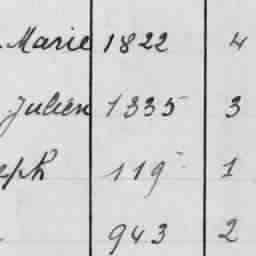 Marie 1822 4
Julien 1335 3
eph 119 1
943 2